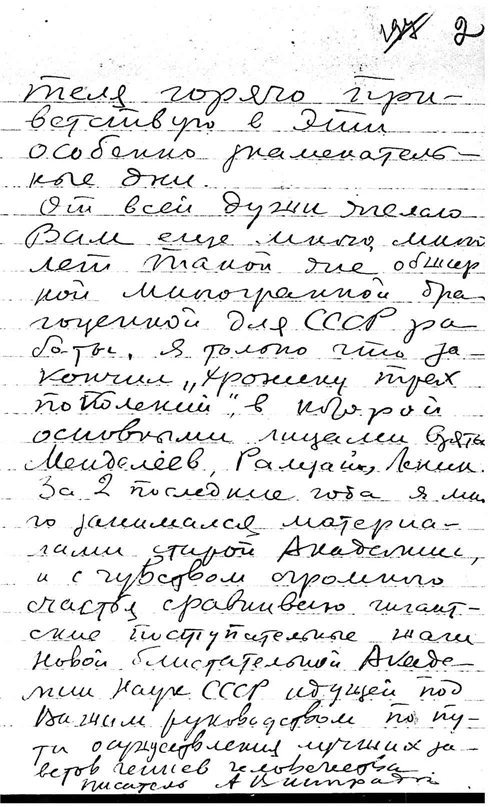 2
теля горячо при-
ветствую в эти
особенно знаменатель-
ные дни.
От всей души желаю
Вам еще много, много
лет такой же обшир
ной многогранной дра
гоценной для СССР ра
боты. Я только что за
кончил „Хронику трех
поколений", в которой
основными лицами взяты
Менделеев, Рамзай, Ленин.
За 2 последние года я мно
го занимался материа-
лами старой Академии,
и с чувством огромного
счастья сравниваю гигант-
ские поступательные шаги
новой блистательной Акаде-
мии Наук СССР идущей под
Вашим руководством по пу-
ти осуществления лучших за-
ветов гениев человечества
писатель А